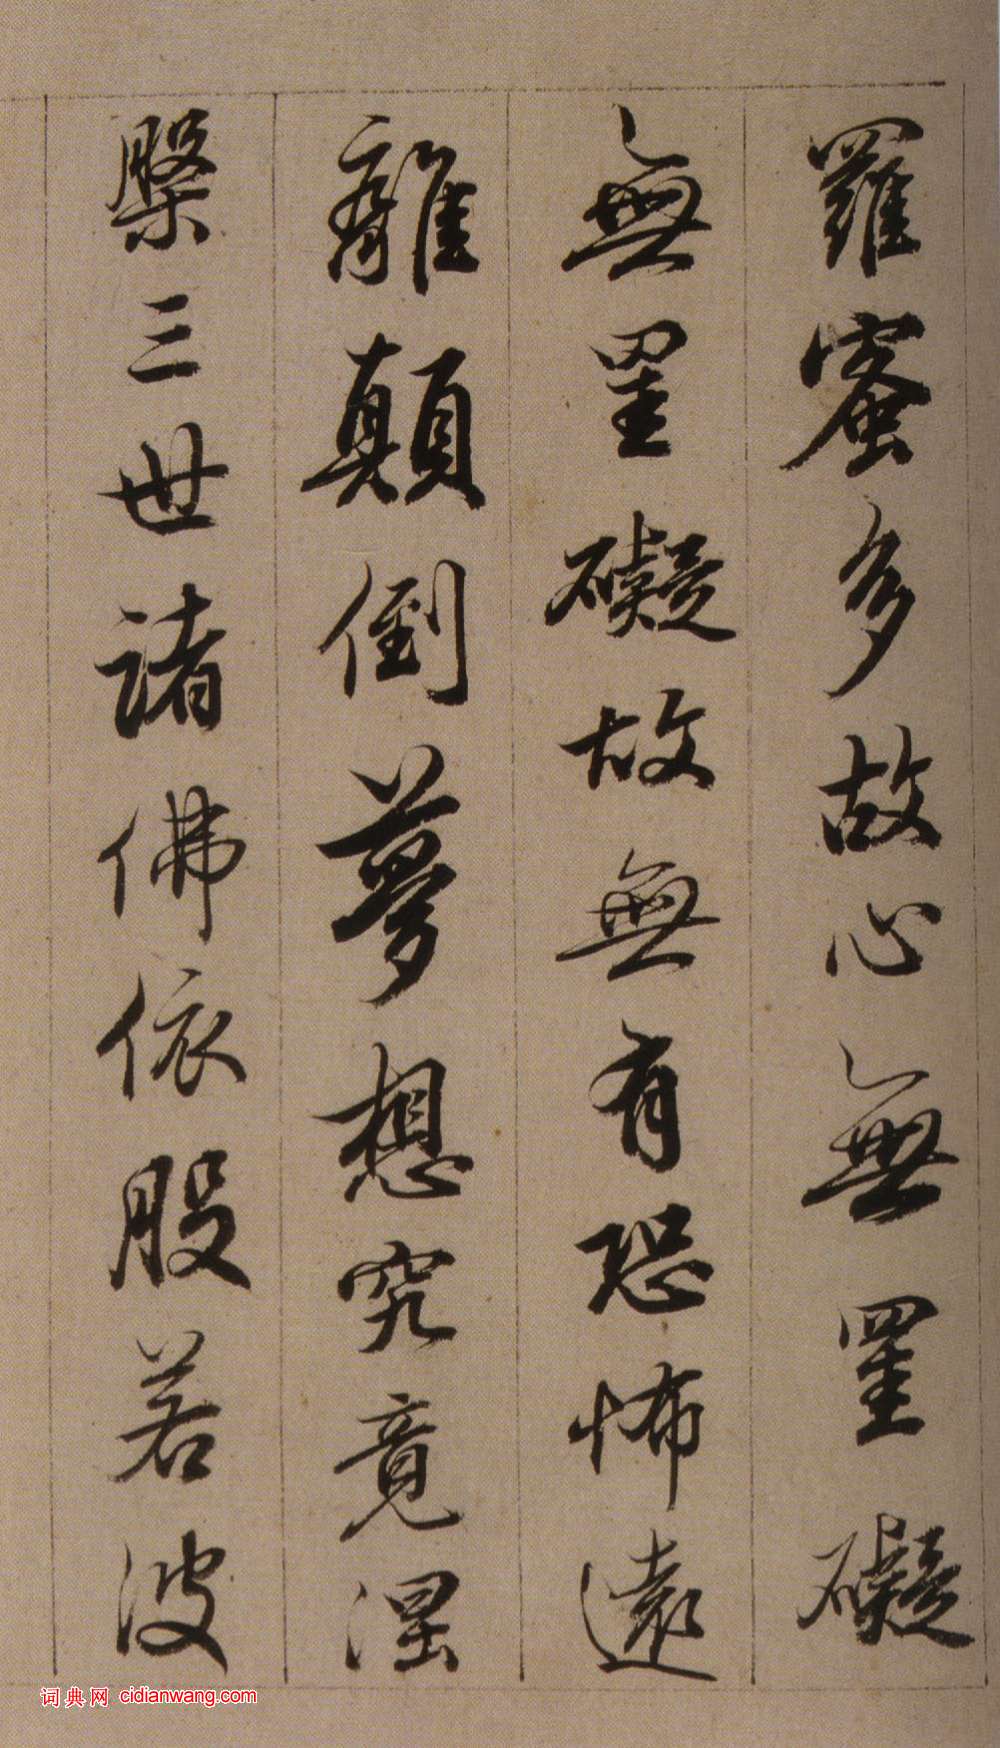 羅蜜多故心無罣礙
無罣礙故無有恐怖遠
離顛倒夢想究竟涅
槃三世諸佛依般若波
词典网 cidianwang.com